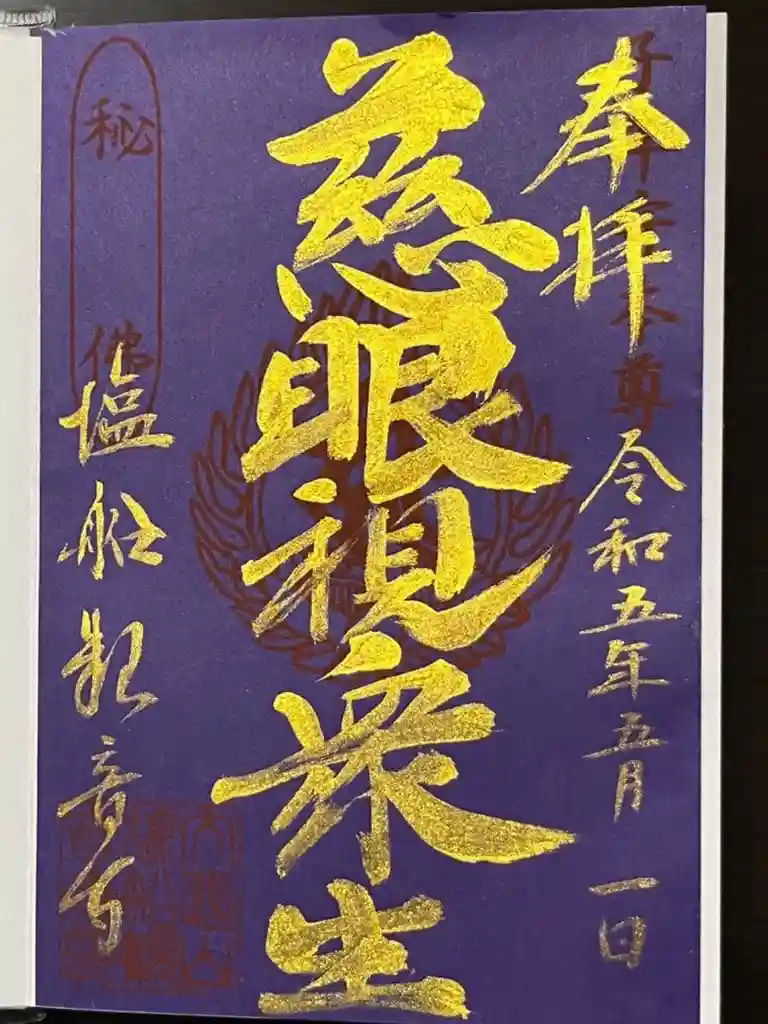 奉拝
令和五年五月一日
慈眼視衆生
秘佛
塩船観音寺